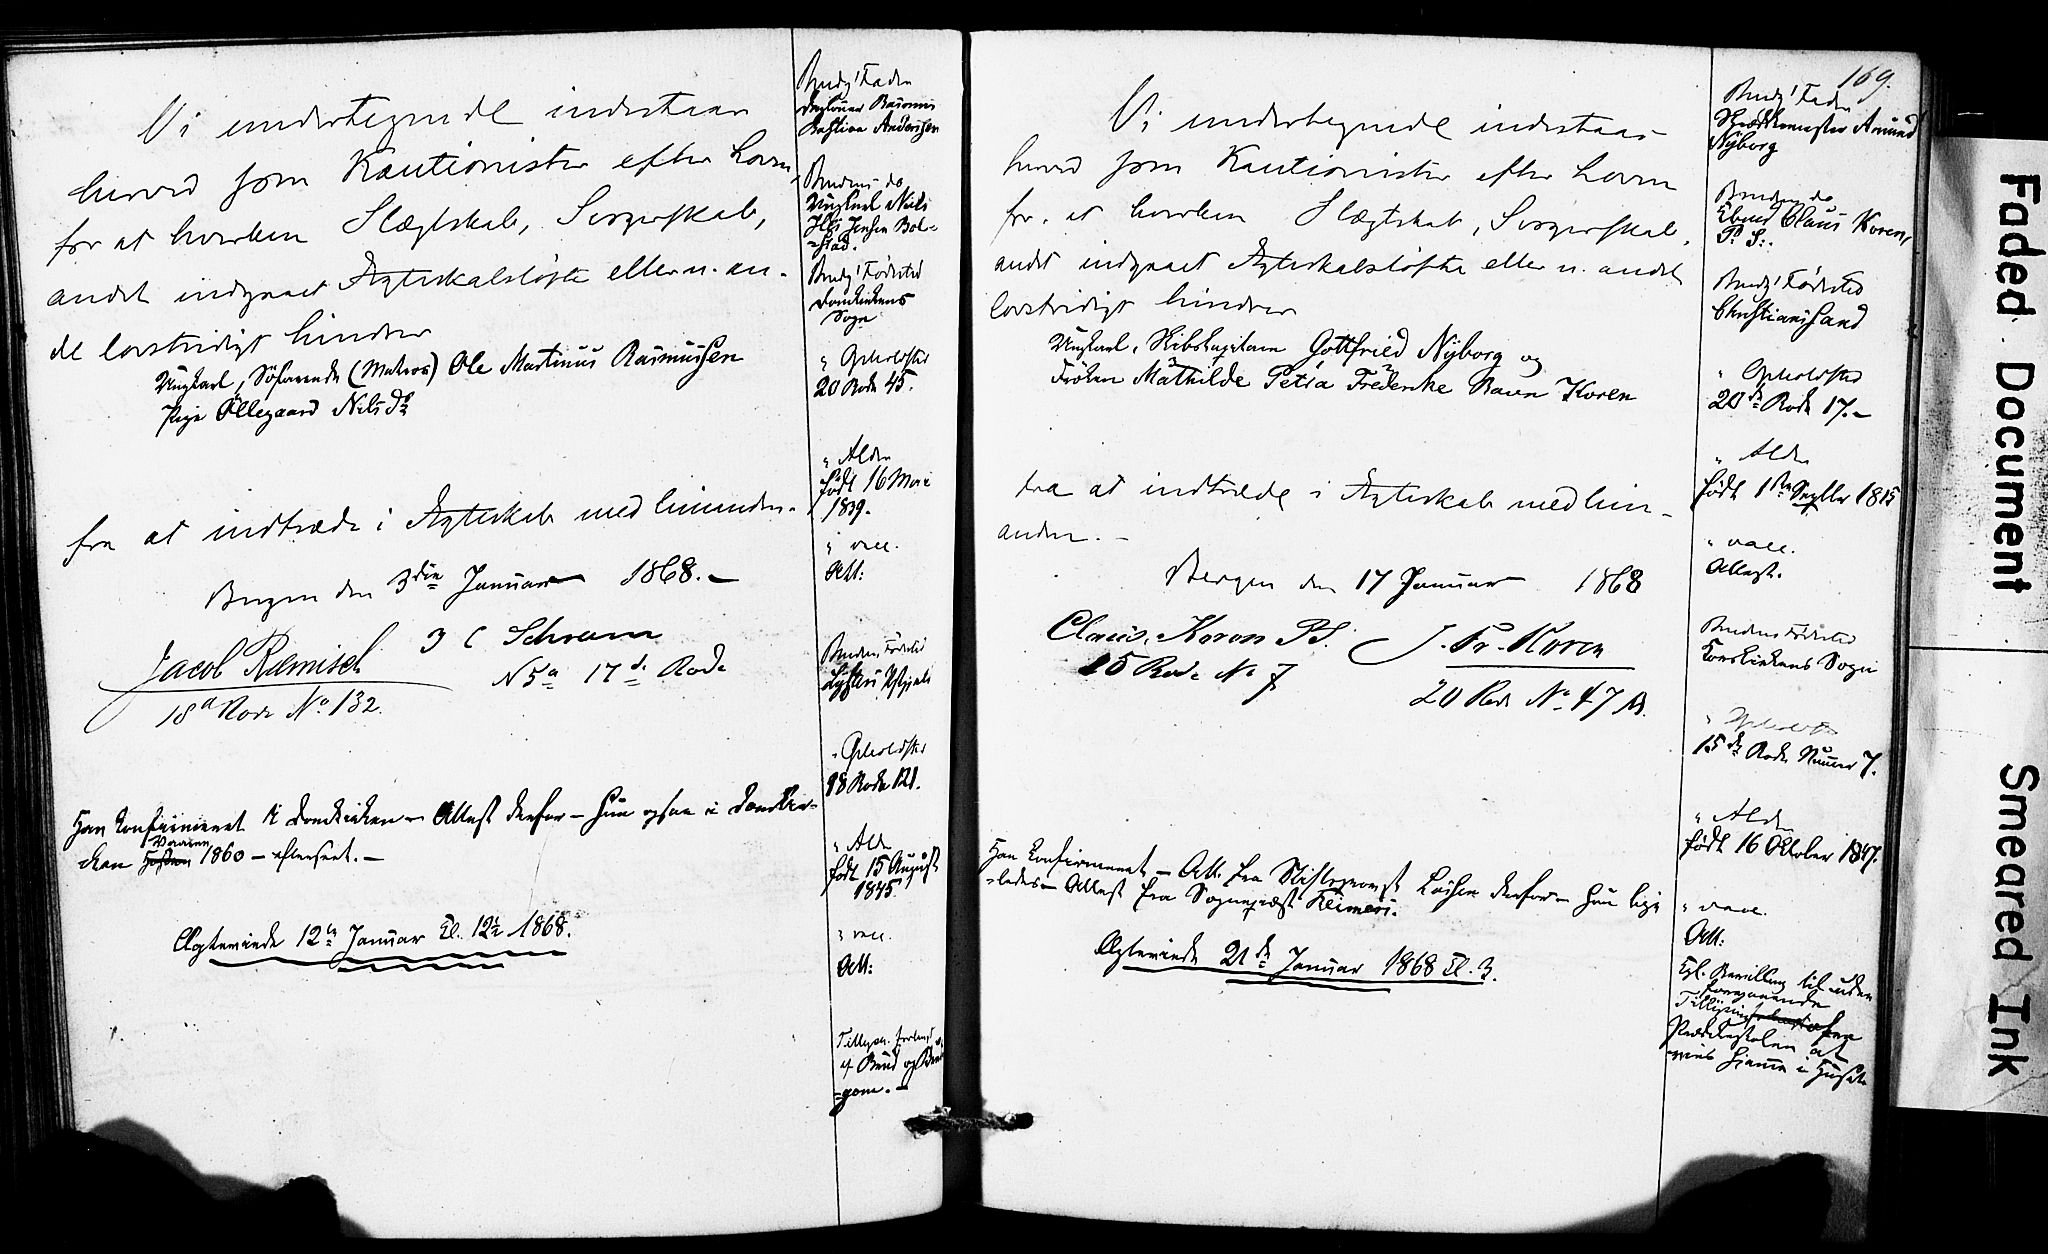 Vi undertegnede indestaar
herved som Kautionister efter Loven,
for at hverken Slægtskab, Svogerskab,
andet indgaaet Ægteskabsløfte eller n. an-
de lovstridigt hinder
Ungkarl, Søfarende (Matros) Ole Martinus Rasmussen
Pige Ollegaard Nilsdr
fra at indtræde i Ægteskab med hinanden.
Bergen den 3die Januar 1868.-
Jacob Remisch
18de Rode No 132.
J C Schram
N 5a 17de Rode
Han konfirmeret i Domkirken - Attest derfor - Hun ogsaa i Domkir-
Vaaren
ken Høsten 1860 - efterseet. -
Ægteviede 12te Januar Kl. 12½ 1868.
Brudg' Fader
Rasmus
Bastian Anderssen
Brudens do
Ungkarl Nils
Jensen Bol-
=stad.
Brudg' Fødested
Domkirkens
Sogn
" Opholdsted
20 Rode 45.
" Alder
født 16 Mai
1839.
" vacc.
Att:
Brudens Fødested
" Opholdsted
18 Rode 121.
" Alder
født 15 August
1845
" vacc.
Att:
Tillysn. forlangt
af Brud og Brud-
=gom. -
169.
Vi undertegnede indestaar
herved som Kautionister efter Loven
for, at hverken Slægtskab, Svogerskab,
andet indgaaet Ægteskabsløfte eller n. andet
lovstridigt hinder
Ungkarl, Skibskaptain Gottfried Nÿborg og
Frøken Mathilde Petra Frederike Ravn Koren
fra at indtræde i Ægteskab med hin-
anden. -
Bergen den 17 Januar 1868
Claus. Koren PS.
15 Rode No 7
J. Fr. Koren
20 Rode No 47 B.
Han konfirmeret - Att. fra Stiftsprovst Daae derfor - Hun lige
=ledes - Attest fra Sogneprest Reimers.
Ægteviede 21de Januar 1868 Kl. 3.
Brudg' Fader
Skræddermester Amund
Nÿborg
Brudens do
Claus Koren,
P. S.
Brudg' Fødested
Christianssand
" Opholdsted
20de Rode 17. -
" Alder
født 1ste Septbr 1815
" vacc.
Attest.
Brudens Fødested
Korskirkens Sogn
" Opholdsted
15de Rode Numer 7.
" Alder
født 16 Oktober 1847.
" vacc.
Att:
Kgl. Bevilling til uden
foregaaende
Tillysning fra
Prædikestolen at
vies hjemme i Huset
Faded Document
Smeared Ink